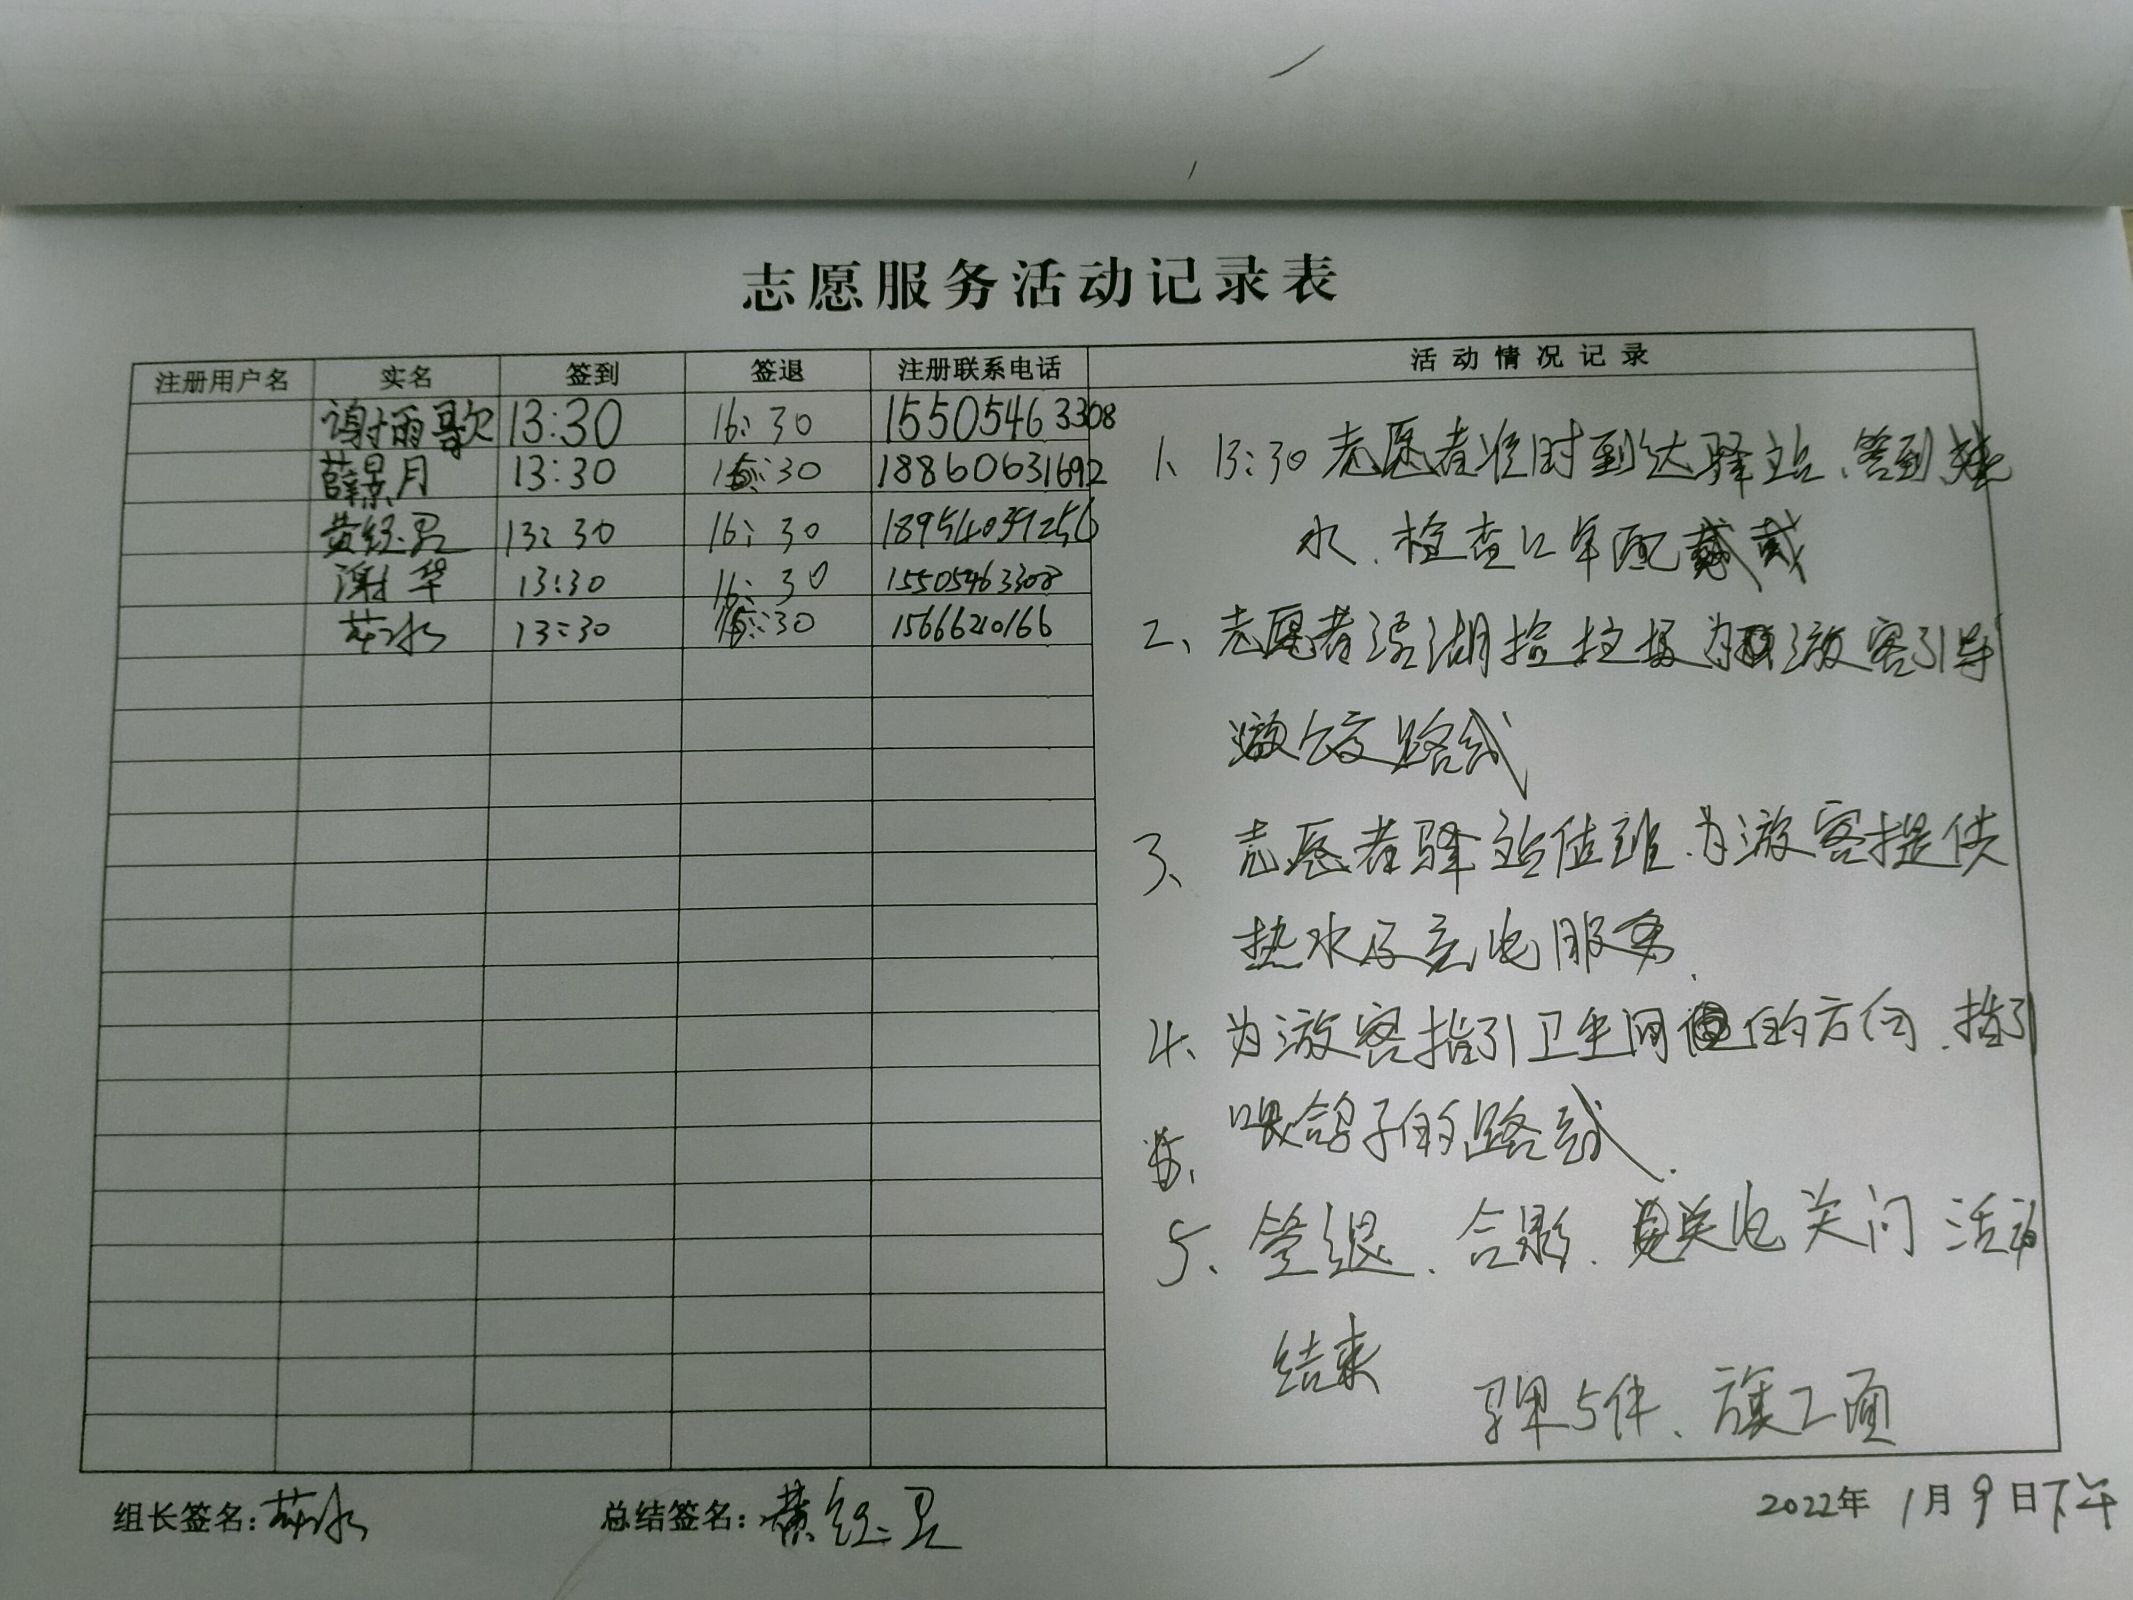 志愿服务活动记录表
注册用户名 实名 签到 签退 注册联系电话 活动情况记录
谢雨歌 13:30 16:30 15505463308
薛景月 13:30 16:30 18860631692
黄经卫 13:30 16:30 18954039256
谢华 13:30 16:30 15505463308
13:30 16:30 15666210166
1、13:30志愿者准时到达驿站、签到、烧
水、检查口罩配戴
2、志愿者湿湖捡垃圾为游客引导
游么路线
3、志愿者驿站值班、为游客提供
热水及充电服务、
4、为游客指引卫生间的方向、指引
喂鸽子的路线、
5、签退、合影、关电关门活动
结束
马甲5件、旗2面
组长签名:
总结签名: 黄经卫
2022年1月9日下午